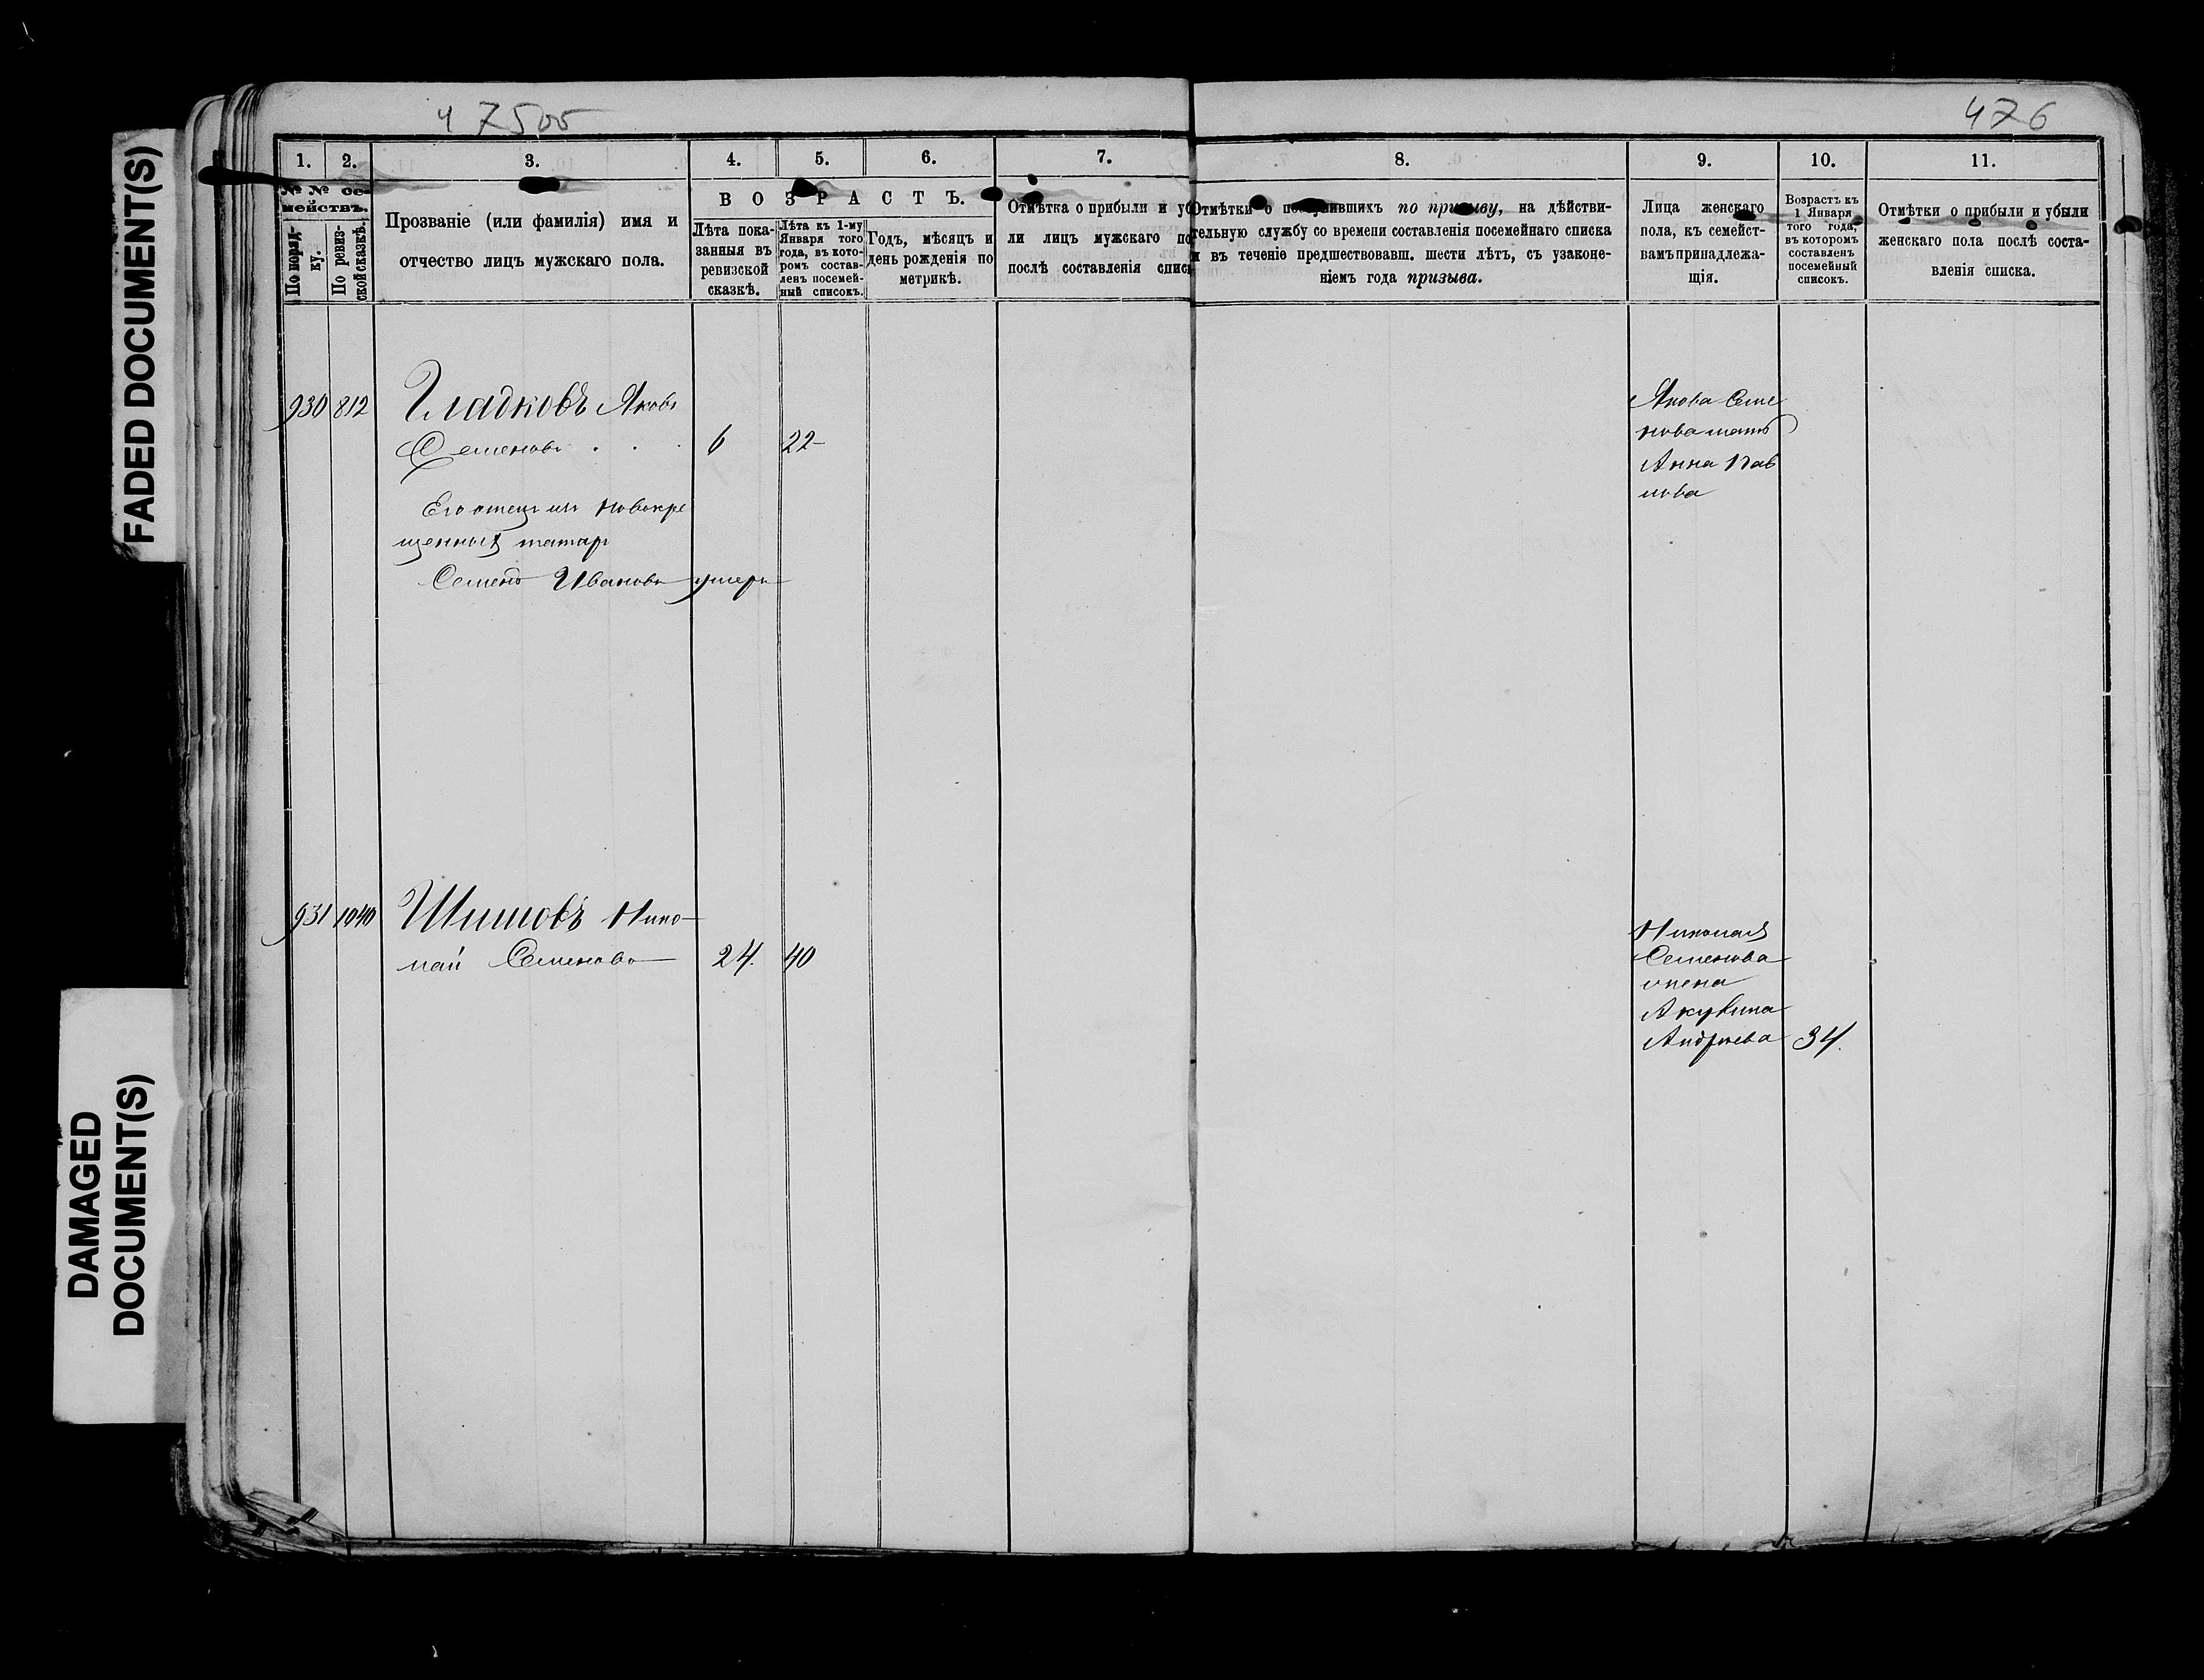 FADED DOCUMENT(S)
DAMAGED
DOCUMENT(S)
475об
476
1. 2. 3. 4. 5. 6. 7. 8. 9. 10. 11.
№ № се-
мействъ.
По поряд-
ку.
По ревиз-
ской сказкѣ.
Прозваніе (или фамилія) имя и
отчество лицъ мужскаго пола.
ВОЗРАСТЪ.
Лѣта пока-
занныя въ
ревизской
сказкѣ.
Лѣта къ 1-му
Января того
года, въ кото-
ромъ состав-
ленъ посемей-
ный списокъ.
Годъ, мѣсяцъ и
день рожденія по
метрикѣ.
Отмѣтка о прибыли и уб
ли лицъ мужскаго по
послѣ составленія списк
Отмѣтки о поступившихъ по призыву, на дѣйстви-
тельную службу со времени составленія посемейнаго списка
и въ теченіе предшествовавш. шести лѣтъ, съ узаконе-
ніемъ года призыва.
Лица женскаго
пола, къ семейст-
вамъ принадлежа-
щія.
Возрастъ къ
1 Января
того года,
въ которомъ
составленъ
посемейный
списокъ.
Отмѣтки о прибыли и убыли
женскаго пола послѣ соста-
вленія списка.
930 812 Гладковъ Яковъ
Семеновъ . . . 6 22
Его отецъ изъ новокре
щенныхъ татаръ
Семенъ Ивановъ умеръ
Якова Семе
нова мать
Анна Пав
лова
931 1040 Шишовъ Нико-
лай Семеновъ 24. 40
Николая
Семенова
жена
Акулина
Андреева 34.